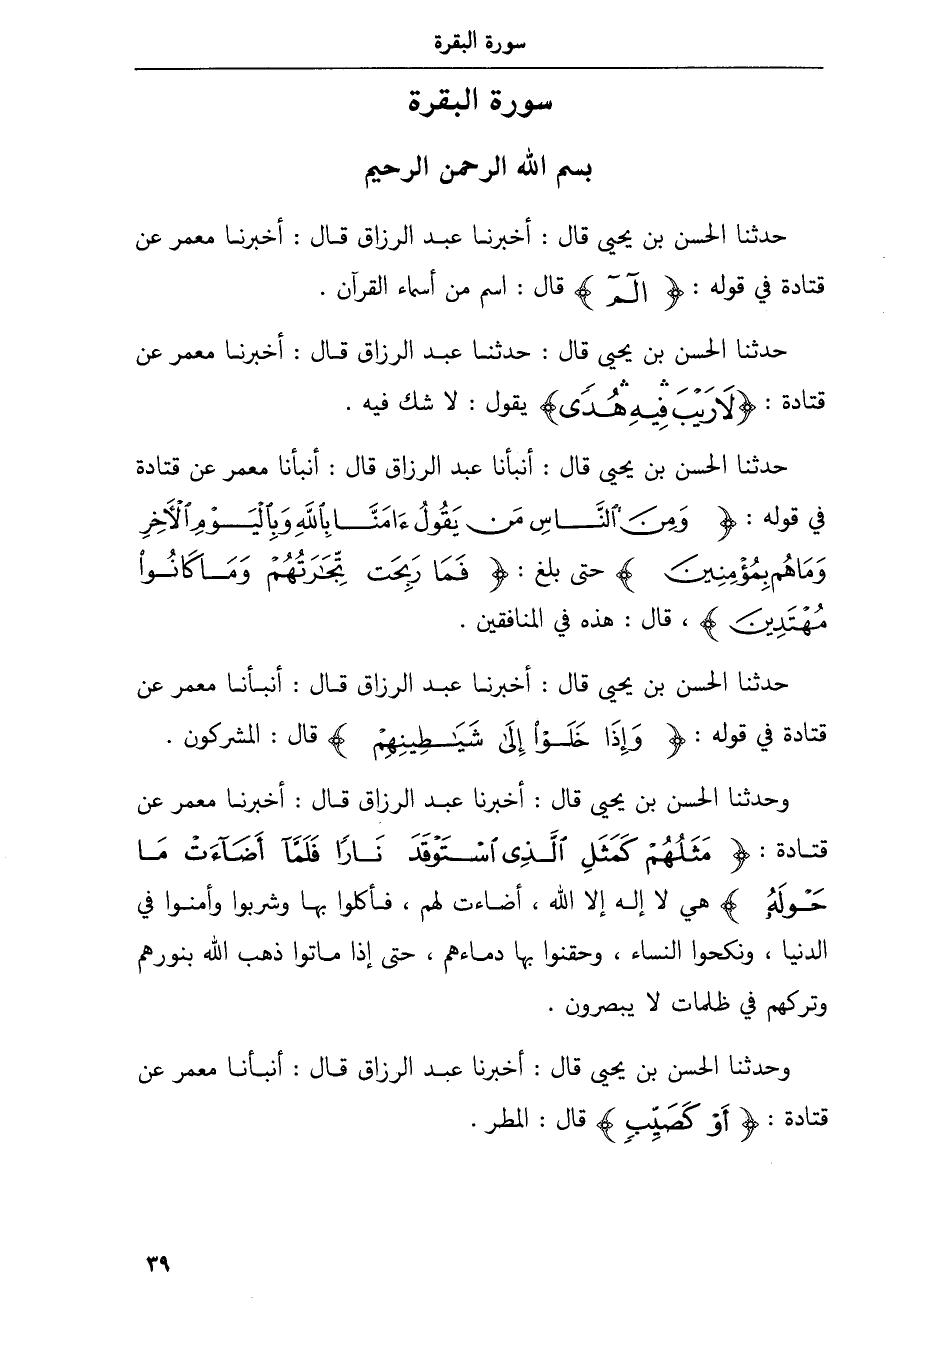 سورة البقرة
سورة البقرة
بسم الله الرحمن الرحيم
حدثنا الحسن بن يحيى قال : أخبرنا عبد الرزاق قال : أخبرنا معمر عن
قتادة في قوله : ﴿ الٓمٓ ﴾ قال : اسم من أسماء القرآن .
حدثنا الحسن بن يحيى قال : حدثنا عبد الرزاق قال : أخبرنا معمر عن
قتادة : ﴿لَارَيْبَۛ فِيهِۛ هُدًى﴾ يقول : لا شك فيه .
حدثنا الحسن بن يحيى قال : أنبأنا عبد الرزاق قال : أنبأنا معمر عن قتادة
في قوله : ﴿ وَمِنَ ٱلنَّاسِ مَن يَقُولُ ءَامَنَّا بِٱللَّهِ وَبِٱلْيَوْمِ ٱلْأَخِرِ
وَمَاهُم بِمُؤْمِنِينَ ﴾ حتى بلغ : ﴿ فَمَا رَبِحَت تِّجَٰرَتُهُمْ وَمَاكَانُوا۟
مُهْتَدِينَ ﴾ ، قال : هذه في المنافقين .
حدثنا الحسن بن يحيى قال : أخبرنا عبد الرزاق قال : أنبأنا معمر عن
قتادة في قوله : ﴿ وَإِذَا خَلَوْا۟ إِلَىٰ شَيَٰطِينِهِمْ ﴾ قال : المشركون .
وحدثنا الحسن بن يحيى قال : أخبرنا عبد الرزاق قال : أخبرنا معمر عن
قتادة : ﴿ مَثَلُهُمْ كَمَثَلِ ٱلَّذِى ٱسْتَوْقَدَ نَارًا فَلَمَّآ أَضَآءَتْ مَا
حَوْلَهُۥ ﴾ هي لا إله إلا الله ، أضاءت لهم ، فأكلوا بها وشربوا وأمنوا في
الدنيا ، ونكحوا النساء ، وحقنوا بها دماءهم ، حتى إذا ماتوا ذهب الله بنورهم
وتركهم في ظلمات لا يبصرون .
وحدثنا الحسن بن يحيى قال : أخبرنا عبد الرزاق قال : أنبأنا معمر عن
قتادة : ﴿ أَوْ كَصَيِّبٍ ﴾ قال : المطر .
٣٩